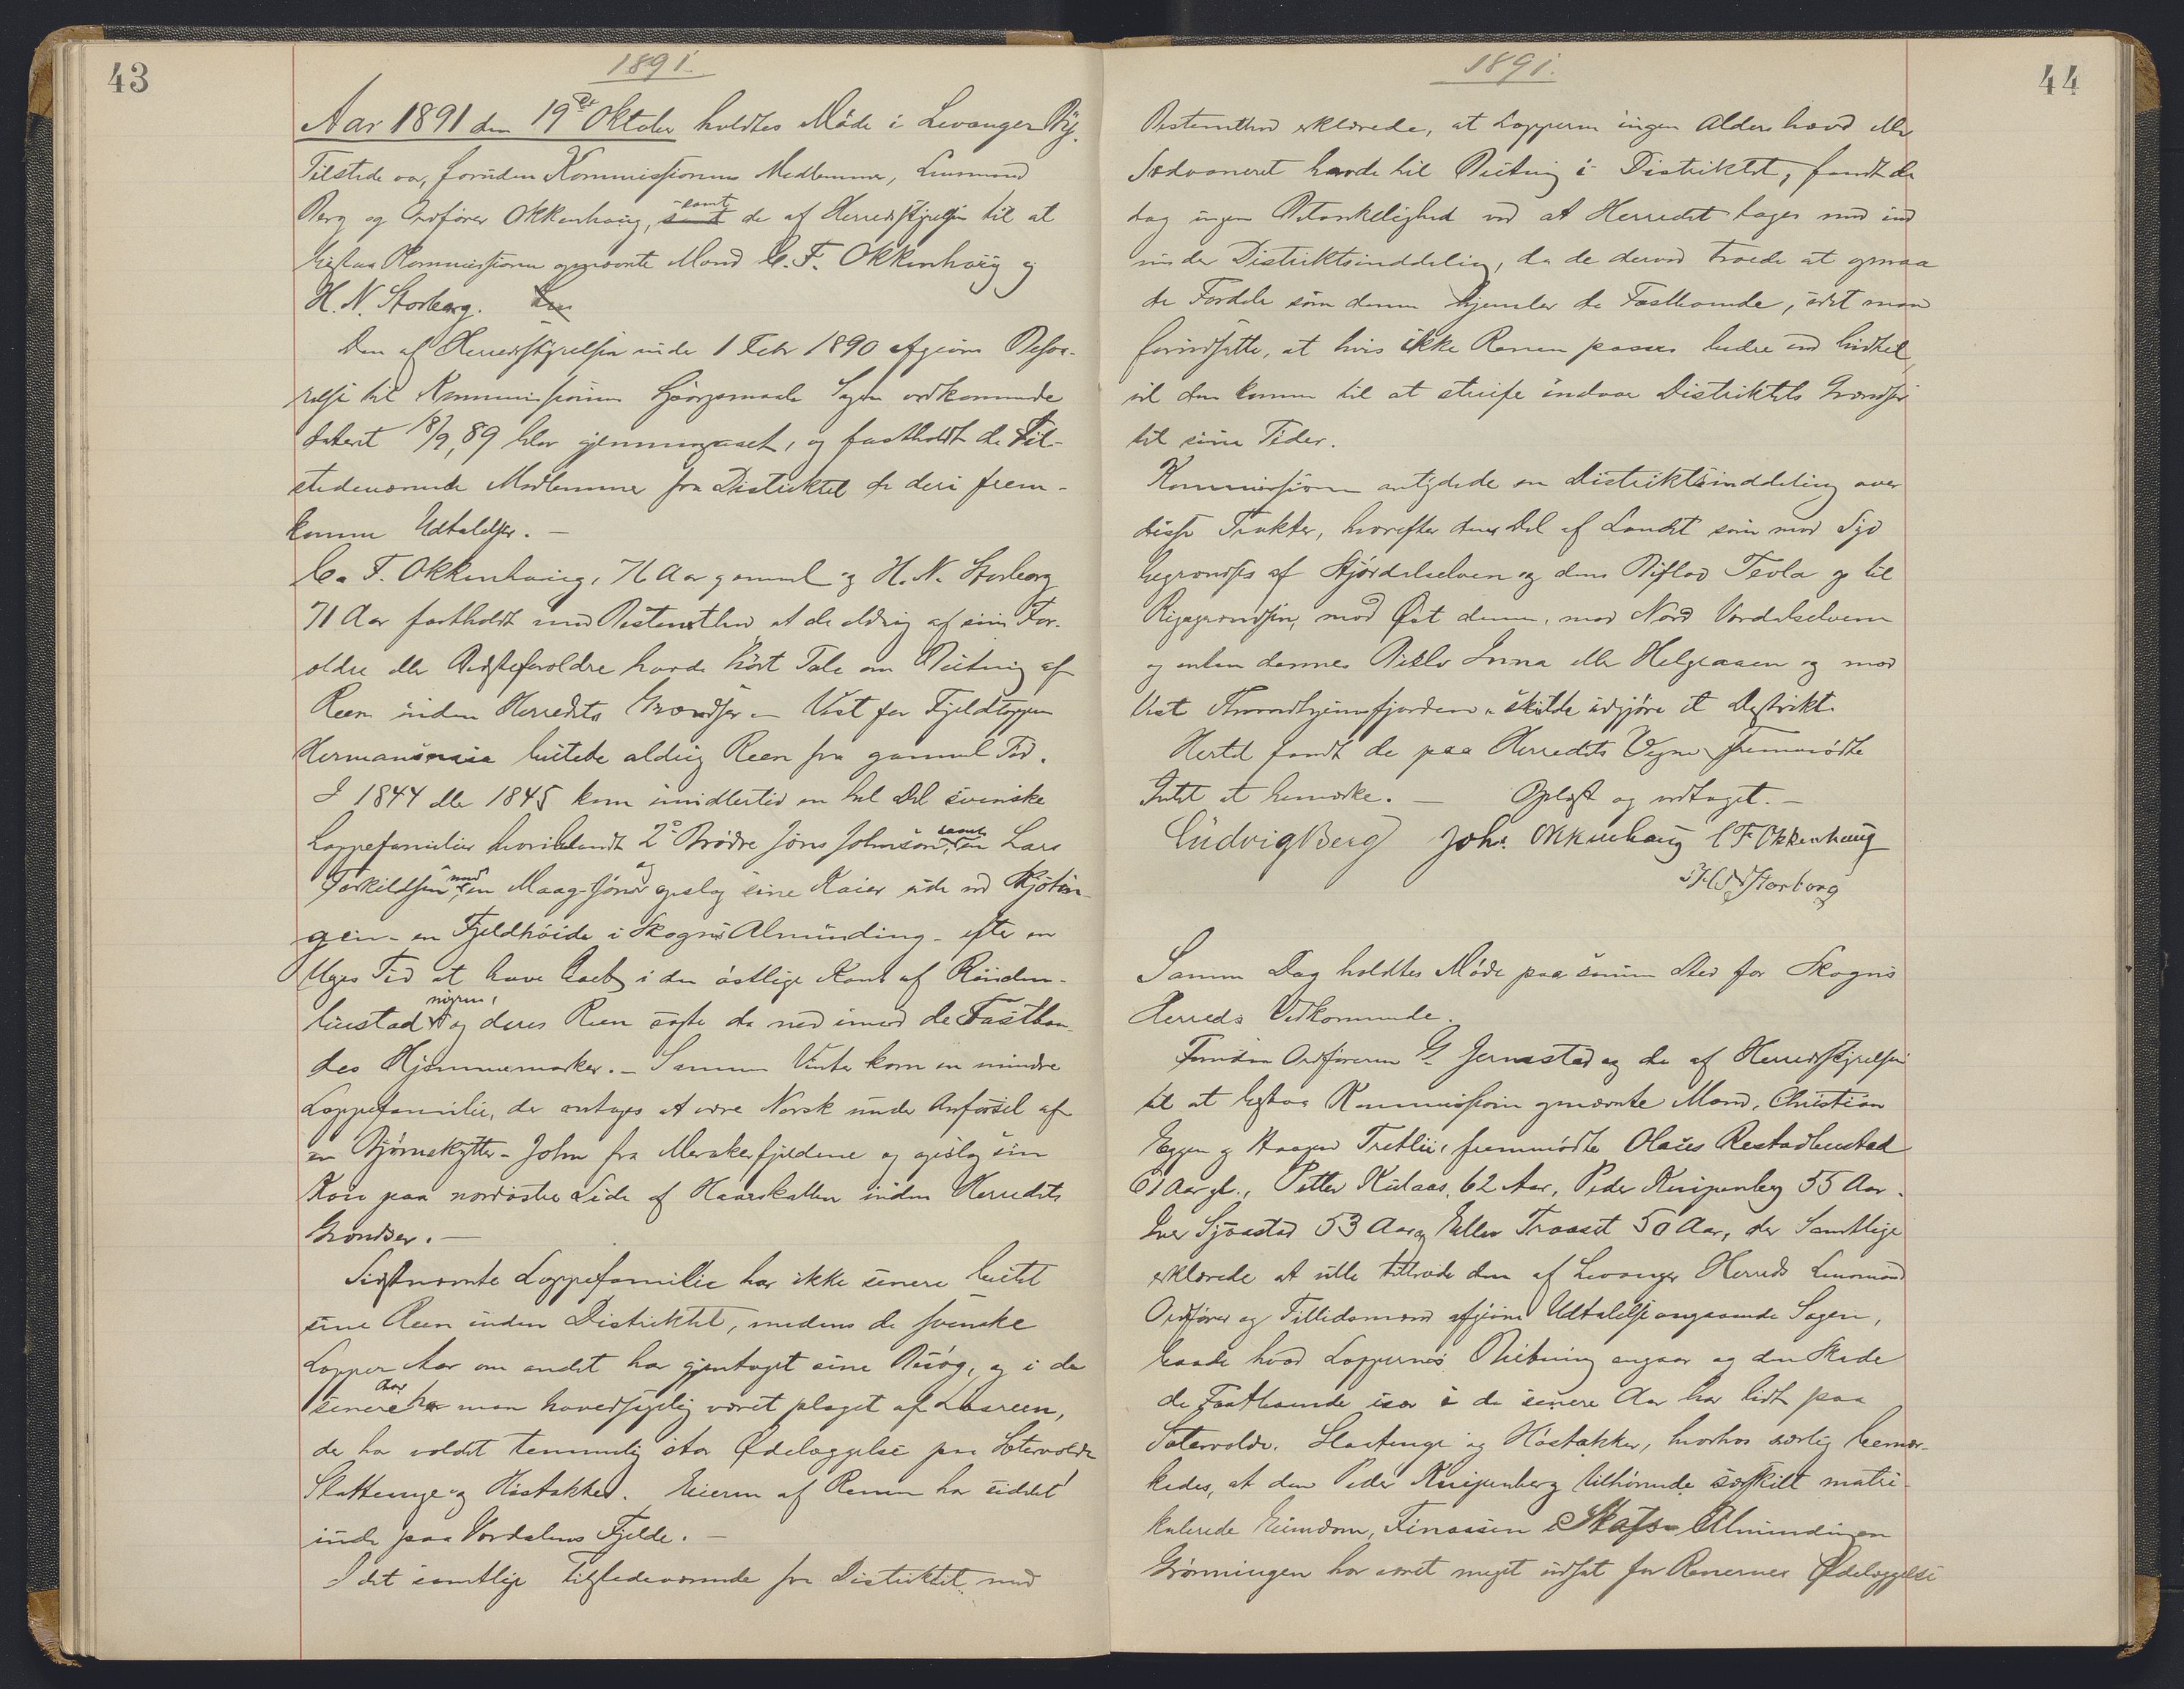 43
1891.
Aar 1891 den 19de Oktober holdtes Møde i Levanger By.
Tilstede var, foruden Kommissionens Medlemmer, Lensmand
Berg og Ordfører Okkenhaug, samt de af Herredsstyrelsen til at
bistaa Kommissionen opnævnte Mænd C. F. Okkenhaug og
H. N. Storborg.
Den af Herredsstyrelsen under 1 Febr 1890 afgivne Besva-
relse til Kommissionens Spørgsmaale Sagen vedkommende
dateret 18/9, 89 blev gjennemgaaet, og fastholdt de Til-
stedeværende Medlemmer fra Distriktet de deri frem-
komne Udtalelser. —
C. F. Okkenhaug, 76 Aar gammel og H. N. Storborg
71 Aar fastholdt med Bestemthed at de aldrig af sine For-
ældre eller Bedsteforældre havde hørt Tale om Beitning af
Reen inden Herredets Grændser. — Vest for Fjeldtoppen
Hermansnasa beitede aldrig Reen fra gammel Tid.
I 1844 eller 1845 kom imidlertid en hel Del svenske
Lappefamilier hvoriblandt 2de Brødre Jøns Johnsøn, samt en Lars
Torkildsen med en Maag Jøns og opslog sine Kaier ude ved Kjølin-
gen - en Fjeldhøide i Skogns Almünding - efter en
Uges Tid at have havt i den østlige Kant af Rinden-
bustad nogen, og deres Reen søgte da ned imod de Fastboen-
des Hjemmemarker. — Samme Vinter kom en mindre
Lappefamilie, der antages at være Norsk under Anførsel af
en Bjørneskytter - John fra Merakerfjeldene og opslog sin
Koie paa nordøstre Side af Haarskallen inden Herredets
Grændser. —
Sidstnævnte Lappefamilie har ikke senere beitet
sine Reen inden Distriktet, medens de svenske
Lapper Aar om andet har gjentaget sine Besøg, og i de
senere Aar har man hovedsagelig været plaget af Løsreen,
der har voldet temmelig stor Ødelæggelse paa Sætervolde
Slaattenge og Høstakker. Eieren af Renen har siddet
inde paa Værdalens Fjelde. —
I det samtlige Tilstedeværende fra Distriktet med
44
1891.
Bestemthed erklærede, at Lapperne ingen Alders hævd eller
Sædvaneret havde til Beitning i Distriktet, fandt de
dog ingen Betænkelighed ved at Herredet tages med ind
under Distriktsinddeling, da de derved troede at opnaa
de Fordele som denne hjemler de Fastboende, idet man
forudsatte, at hvis ikke Renen passes bedre end hidtil,
vil den komme til at streife indover Distriktets Grændser
til sine Tider.
Kommissionen antydede en Distriktsinddeling over
disse Trakter, hvorefter den Del af Landet som mod Syd
begrændses af Stjørdalselven og dens Bielv Tevla og til
Rigsgrændsen, mod Øst denne, mod Nord Værdalselven
og enten dennes Bielv Inna eller Helgaaen og mod
Vest Throndhjemsfjorden, skulde udgjøre et Distrikt.
Hertil fandt de paa Herredets Vegne fremmødte
Intet at bemærke. — Oplæst og vedtaget. —
Ludvig Berg Johs. Okkenhaug C F Okkenhaug
H N Storborg
Samme Dag holdtes Møde paa samme Sted for Skogns
Herreds Vedkommende.
Foruden Ordføreren G. Jermstad og de af Herredsstyrelsen
til at bistaa Kommissionen opnævnte Mænd, Christian
Eggen og Haagen Tretlii, fremmødte Olaus Restadbustad
61 Aar gl., Petter Kulaas, 62 Aar, Peder Kneipenberg 55 Aar.
Iver Sjøastad 53 Aar og Ellev Troaset 50 Aar, der Samtlige
erklærede at ville tiltræde den af Levanger Herreds Lensmand
Ordfører og Tillidsmænd afgivne Udtalelse angaaende Sagen,
baade hvad Lappernes Beitning angaar og den Skade
de Fastboende især i de senere Aar har lidt paa
Sætervolde, Slaatenge og Høstakker, hvorhos særlig bemær-
kedes, at den Peder Kneipenberg tilhørende særskilt matri-
kulerede Eiendom, Finaasen i Skogns Almindingen
Grønningen har været meget udsat for Renernes Ødelæggelse